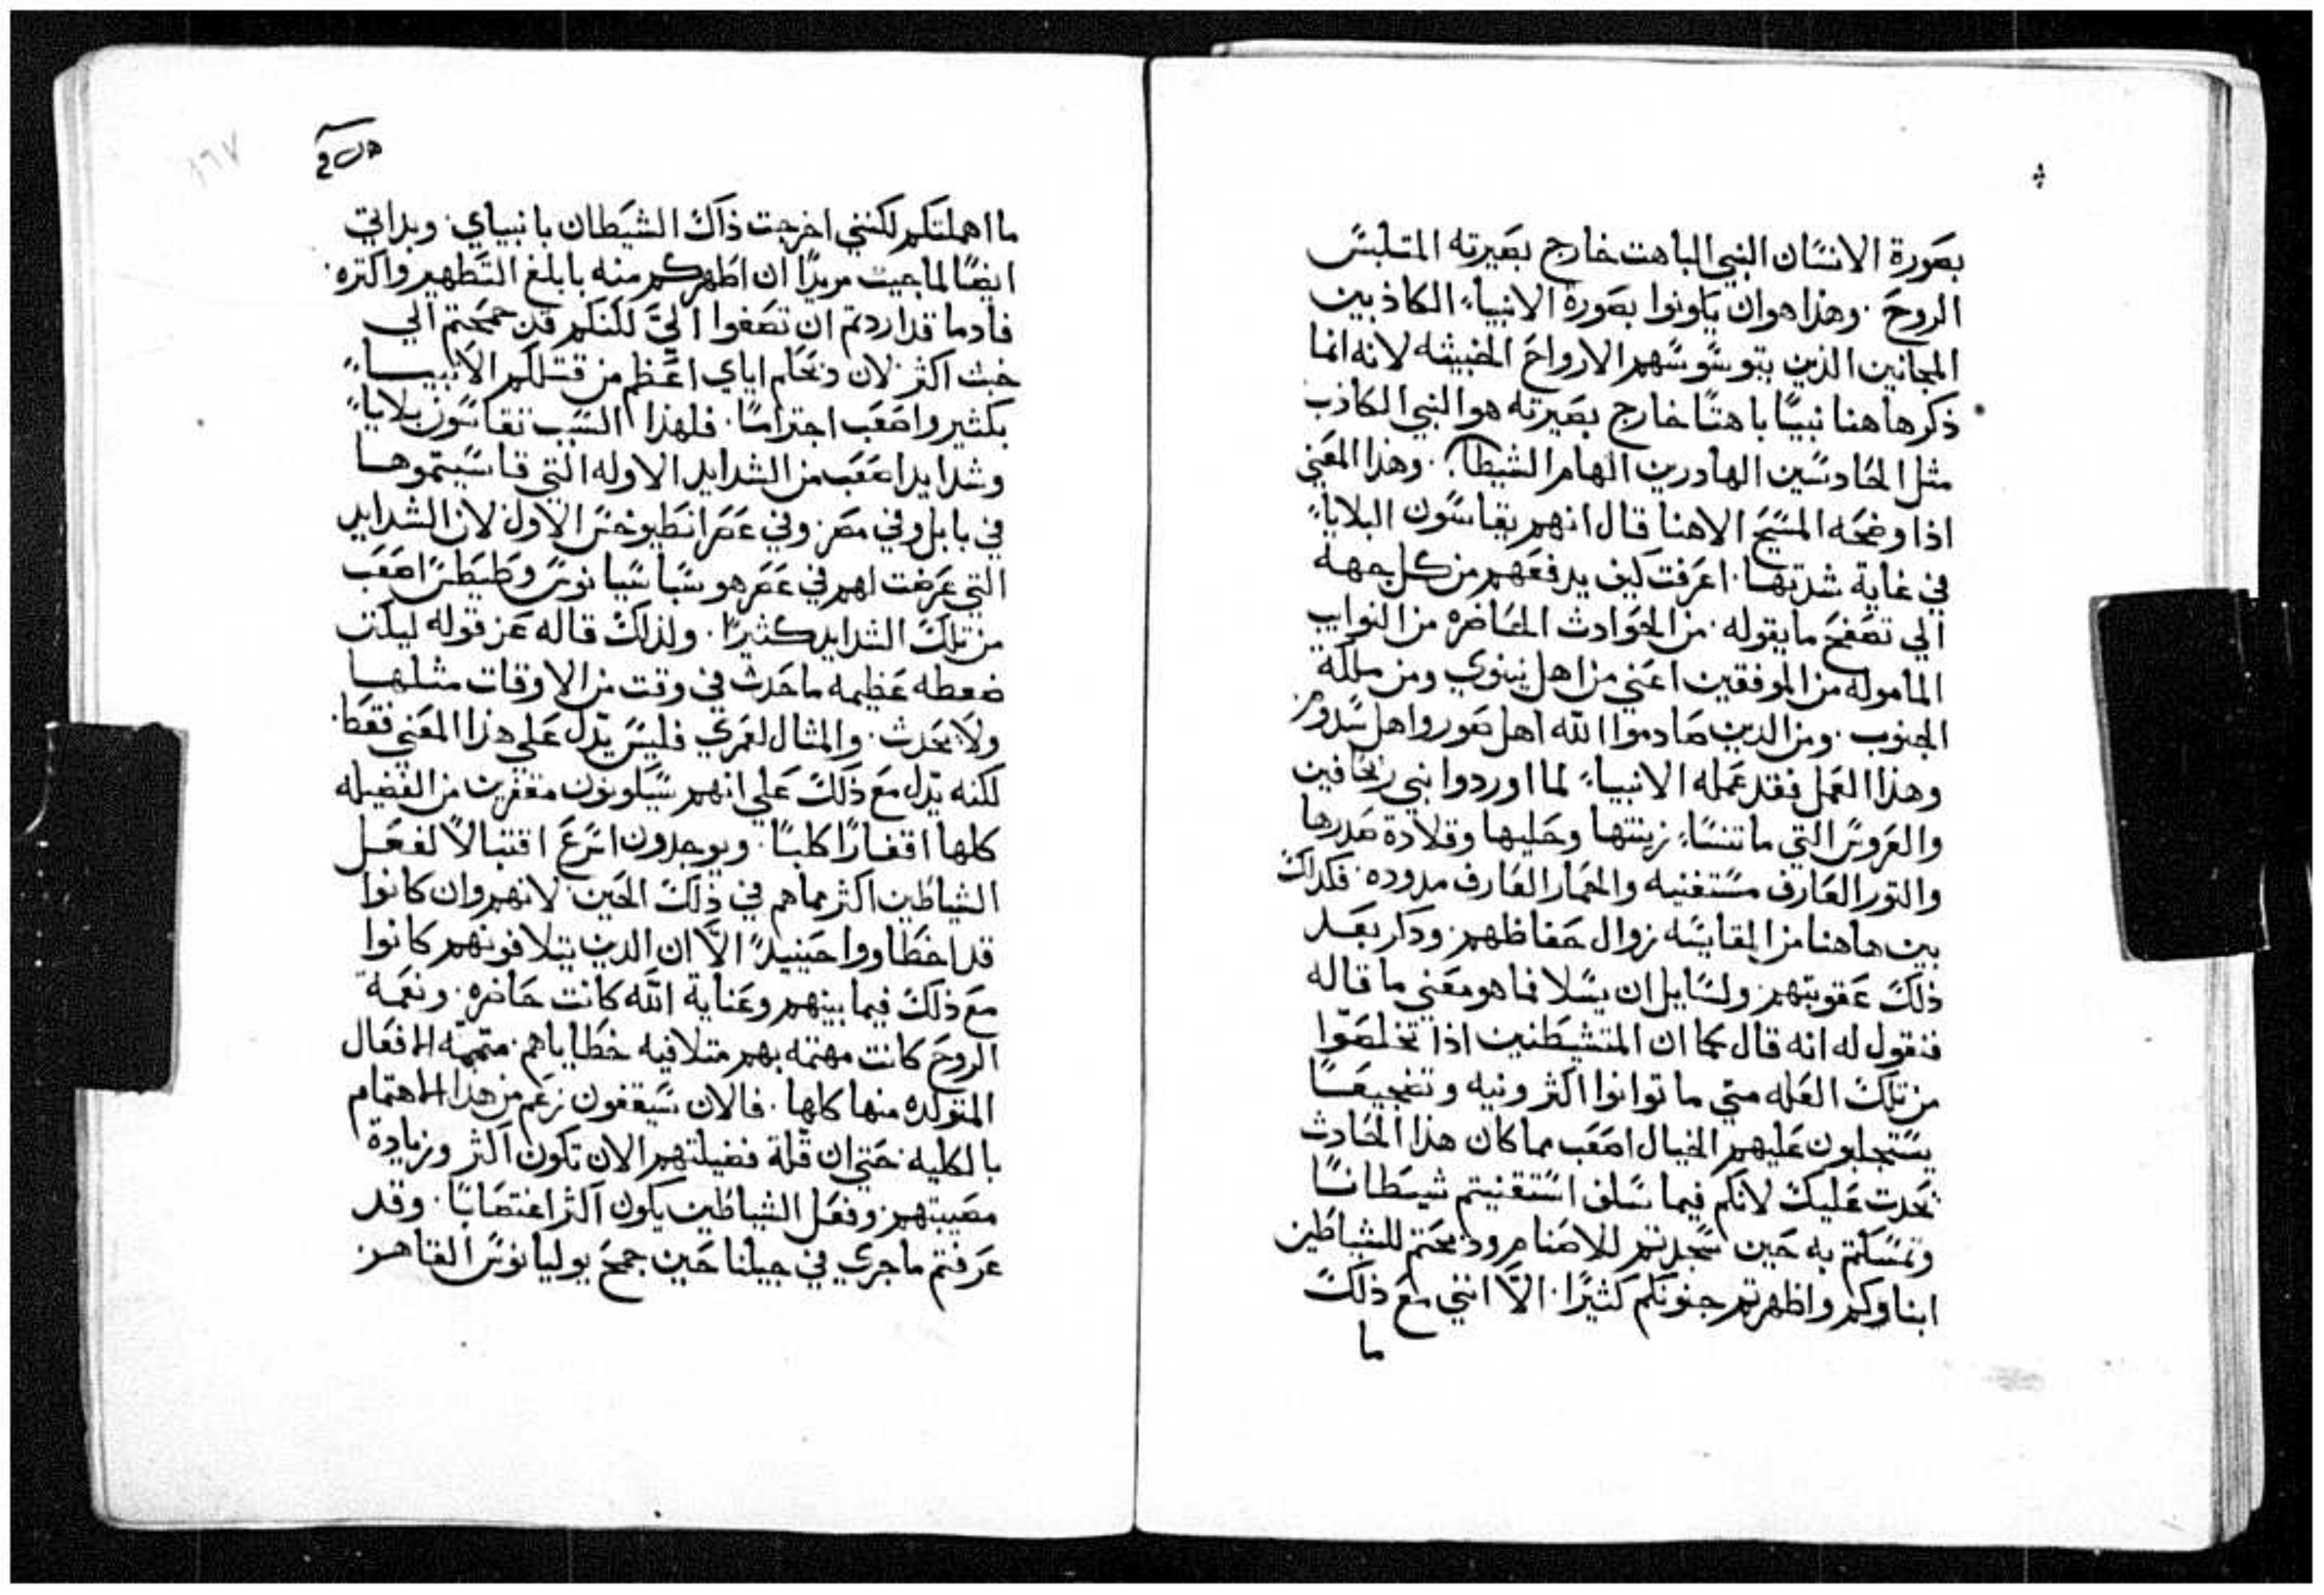 بصورة الانسان النبي الباهت خارج بصيرته المتلبس
الروح . وهذا هو ان ياونوا بصورة الانبياء الكاذبين
المجانين الذين يتوسوسهم الارواح الخبيثه لانه انما
ذكر هاهنا نبيًا باهتًا خارج بصيرته هو النبي الكاذب
مثل الحادسين الهادرين الهام الشيطان . وهذا المعني
اذا وضحه المسيح الاهنا قال انهم يقاسون البلايا
في غاية شدتها . اعرفت كيف يدفعهم من كل جهة
الي تصفح ما يقوله . من الحوادث الحاضره من النوايب
الماموله من الموفقين اعني من اهل نينوي ومن ملكة
الجنوب . ومن الدين صادموا الله اهل صور واهل سدوم
وهذا العمل فقد عمله الانبياء لما اوردوا بني رخافين
والعروس التي ما تنساء زينتها وحليها وقلادة صدرها
والتور العارف مستغنيه والحمار العارف مدوده . فكدلك
بين هاهنا من المقايسه زوال حفاظهم . ودكر بعد
ذلك عقوبتهم . ولسايل ان يسلا فما هو معني ما قاله
فنقول له انه قال كما ان المتشيطنين اذا تخلصوا
من تلك العله متي ما توانوا اكثر ونيه وتضجيعًا
يستجلبون عليهم الخيال اصعب مما كان هذا الحادث
تحدت عليك لانكم فيما سلف استقنيتم شيطانًا
وتمسكتم به حين سجدتم للاصنام ودبحتم للشياطين
ابناوكم واظهرتم جنونكم كثيرًا . الا انني مع ذلك
ما
ما اهملتكم لكنني اخرجت ذاك الشيطان بانبياي . وبداتي
ايضًا لما جيت مريدًا ان اطهركم منه بابلغ التطهير واكتره .
فادما قد اردتم ان تصغوا الي لكنكم قد جمحتم الي
خبث اكثر لان دبحكم اياي اعظم من قتلكم الانبيساء
بكثير واصعب اجتراما . فلهذا السبب تقاسون بلايا
وشدايد اصعب من الشدايد الاوله التي قاسيتموها
في بابل وفي مصر . وفي عصر انطيوخس الاول لان الشدايد
التي عرضت لهم في عصر هو سباسيانوس وطيطس اصعب
من تلك الشدايد كثيرًا . ولذلك قاله عن قوله ليكنن
ضغطه عظيمه ما حدث في وقت من الاوقات مثلها
ولا يحدث . والمثال لعمري فليس يدل علي هذا المعني فقط .
لكنه يدل مع ذلك علي انهم سيكونون مقفرين من الفضيله
كلها اقفارًا كليًا . ويوجدون اسرع اقتبالًا لفعل
الشياطين اكثر مما هم في ذلك الحين لانهم وان كانوا
قد اخطاووا حينيدً الا ان الدين يتلافونهم كانوا
مع ذلك فيما بينهم وعناية الله كانت حاضره . ونعمة
الروح كانت مهتمه بهم متلافيه خطاياهم . متممه الافعال
المتولده منها كلها . فالان سيقفون زعم من هدا الاهتمام
بالكليه . حتي ان قلة فضيلتهم الان تكون اكثر وزيادة
مصيبتهم . وفعل الشياطين يكون اكثر اغتصابًا . وقد
عرفتم ما جري في جيلنا حين جمح يوليانوس القاهر
١٦٧